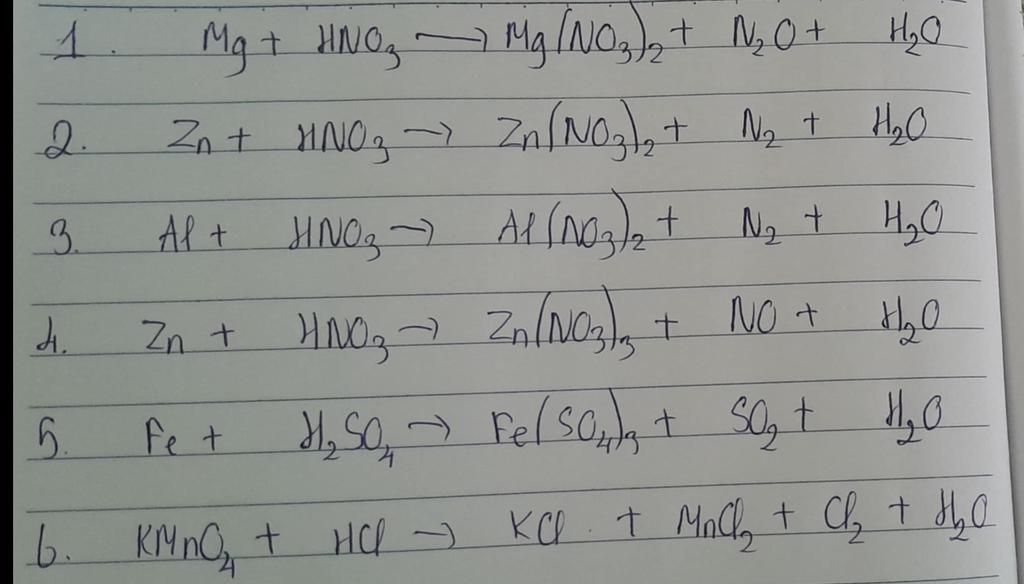 1. Mg + HNO3 → Mg(NO3)2 + N2O + H2O
2. Zn + HNO3 → Zn(NO3)2 + N2 + H2O
3. Al + HNO3 → Al(NO3)2 + N2 + H2O
4. Zn + HNO3 → Zn(NO3)3 + NO + H2O
5. Fe + H2SO4 → Fe(SO4)3 + SO2 + H2O
6. KMnO4 + HCl → KCl + MnCl2 + Cl2 + H2O